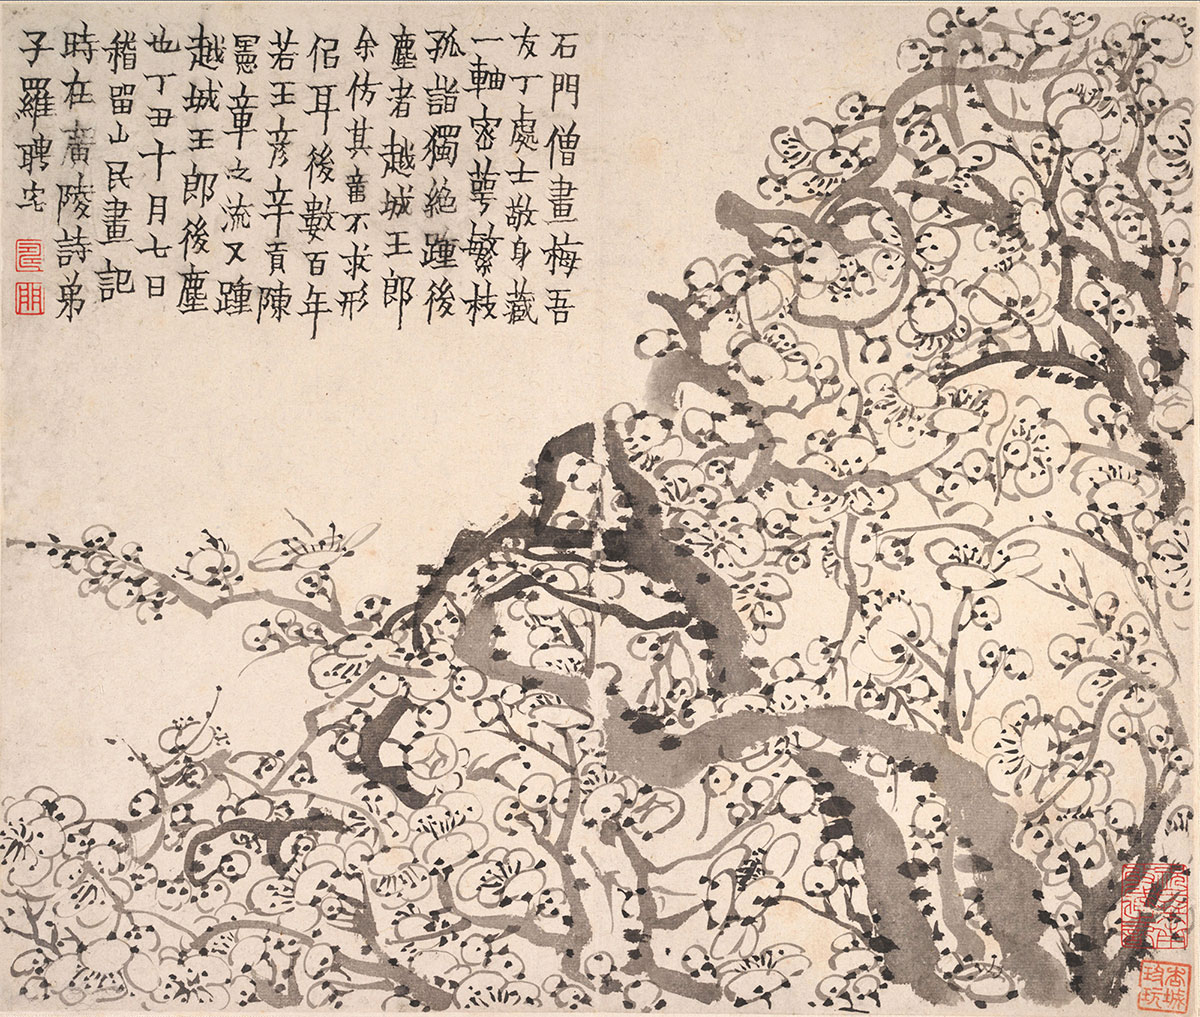 石門僧畫梅吾
友丁處士敬身藏
一軸密萼繁枝
孤詣獨絶踵後
塵者越城王郎
余仿其意不求形
侣耳後數百年
若王彥辛貢陳
憲章之流又踵
越城王郎後塵
也丁丑十月七日
稽留山民畫記
時在廣陵詩弟
子羅聘宅